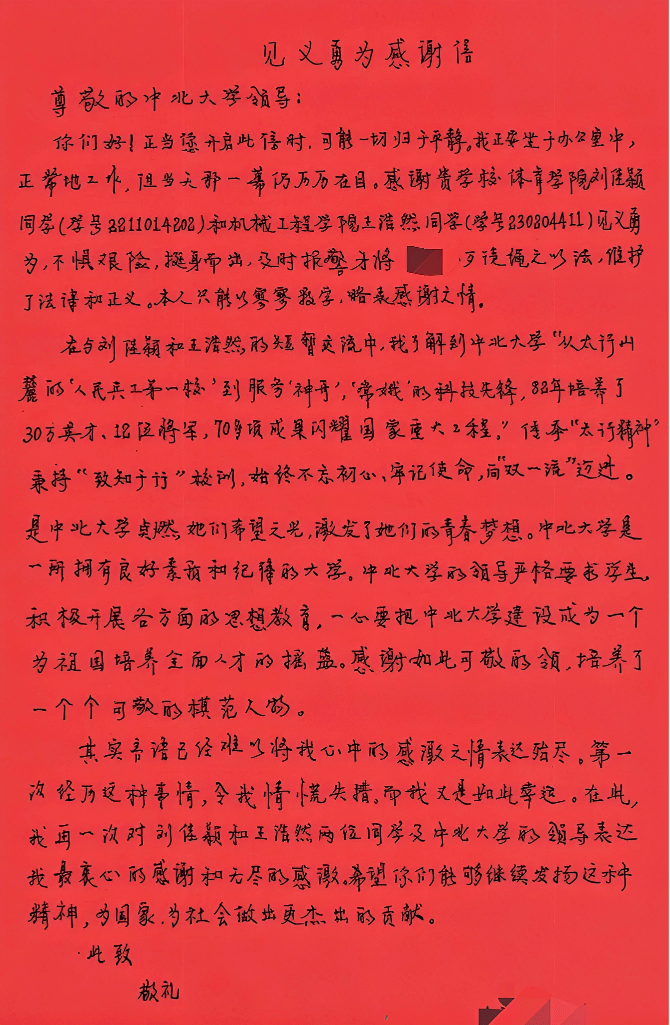 见义勇为感谢信
尊敬的中北大学领导：
你们好！正当您开启此信时，可能一切归于平静。我正安坐于办公室中，
正常地工作，但当天那一幕仍历历在目。感谢贵学校体育学院刘佳颖
同学(学号2211014202)和机械工程学院王浩然同学(学号230204411)见义勇
为，不惧艰险，挺身而出，及时报警才将 歹徒绳之以法，维护
了法律和正义。本人只能以寥寥数字，略表感谢之情。
在与刘佳颖和王浩然的短暂交流中，我了解到中北大学“从太行山
麓的‘人民兵工第一校’到服务‘神舟’，‘常娥’的科技先锋，82年培养了
30万英才、12位将军，70多项成果闪耀国家重大工程。”传承“太行精神”
秉持“致知于行”校训，始终不忘初心、牢记使命，向“双一流”迈进。
是中北大学点燃她们希望之光，激发了她们的青春梦想。中北大学是
一所拥有良好素质和纪律的大学。中北大学的领导严格要求学生。
积极开展各方面的思想教育，一心要把中北大学建设成为一个
为祖国培养全面人才的摇蓝。感谢如此可敬的领，培养了
一个个可敬的模范人物。
其实言语已经难以将我心中的感激之情表达殆尽。第一
次经历这种事情，令我情慌失措。而我又是如此幸运。在此，
我再一次对刘佳颖和王浩然两位同学及中北大学的领导表达
我最衷心的感谢和无尽的感激。希望你们能够继续发扬这种
精神，为国家.为社会做出更杰出的贡献。
此致
敬礼